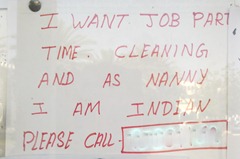 I WANT JOB PART
TIME. CLEANING
AND AS NANNY
I AM INDIAN
PLEASE CALL -